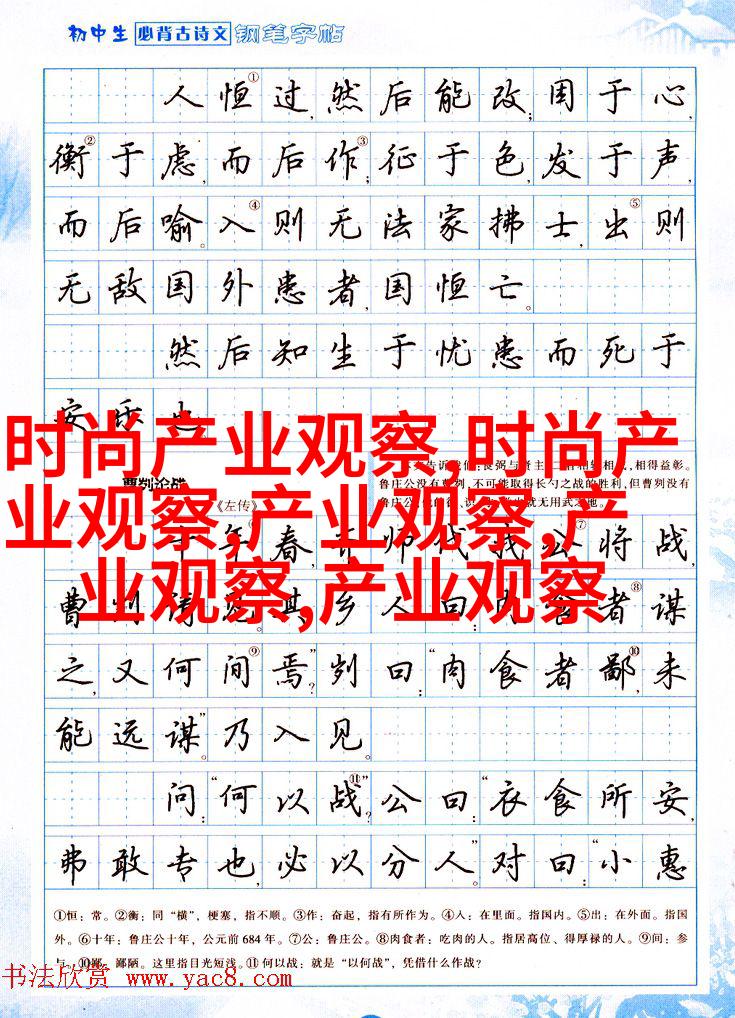 初中生 必背古诗文 钢笔字帖
人恒①过,然后能改;困于心,
衡②于虑,而后作③;征于色,发于声,
而后喻。入④则无法家拂士,出⑤则
无敌国外患者,国恒亡。
然后知生于忧患而死于
安乐也
时尚产业观察,时尚产
业观察,产业观察,产
业观察,产业观察
曹刿论战
《左传》
鲁庄公没有曹刿,不可能取得长勺之战的胜利,但曹刿没有
十年春,齐师伐我。公⑦将战,
曹刿请见。其乡人曰:肉食者⑧谋
之,又何间⑨焉?”刿曰:“肉食者鄙⑩,未
能远谋。”乃入见。
问:“何以战⑪?”公曰:“衣食所安,
弗敢专也,必以分人。”对曰:“小惠
①恒:常。②衡:同“横”,梗塞,指不顺。③作:奋起,指有所作为。④入:在里面。指国内。⑤出:在外面。指国
外。⑥十年:鲁庄公十年,公元前684年。⑦公:鲁庄公。⑧肉食者:吃肉的人。指居高位、得厚禄的人。⑨间:参
与。⑩鄙:鄙陋。这里指目光短浅。⑪何以战:就是“以何战”,凭借什么作战?
书法欣赏 www.yac8.com